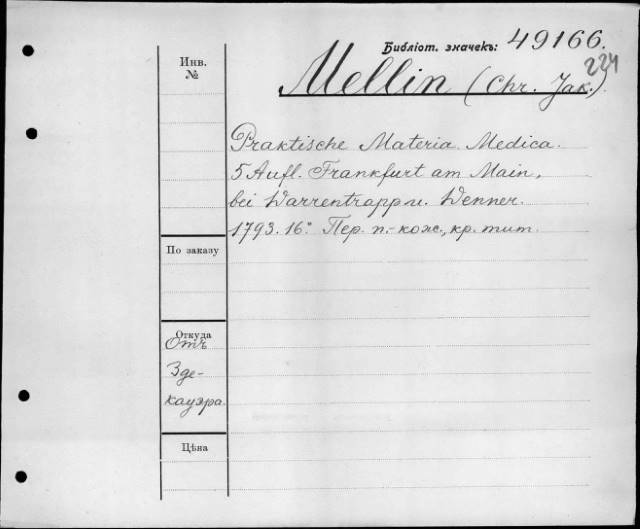 Библіот. значекъ: 49166.
224
Инв.
№
Mellin (Chr. Jak.).
Praktische Materia Medica.
5 Aufl. Frankfurt am Main,
bei Warrentrapp u. Wenner.
1793. 16° Пер. п.-кож., кр. тит.
По заказу
Откуда
Отъ
Зде-
кауэра.
Цѣна